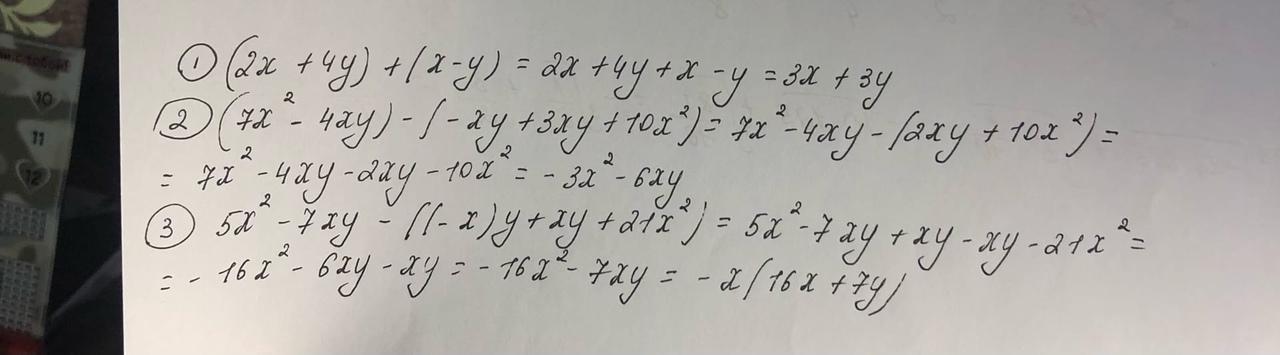 ① (2x + 4y) + (x - y) = 2x + 4y + x - y = 3x + 3y
② (7x² - 4xy) - (-xy + 3xy + 10x²) = 7x² - 4xy - (2xy + 10x²) =
= 7x² - 4xy - 2xy - 10x² = - 3x² - 6xy
③ 5x² - 7xy - ((-x)y + xy + 21x²) = 5x² - 7xy + xy - xy - 21x² =
= - 16x² - 6xy - xy = - 16x² - 7xy = - x(16x + 7y)
10
11
12